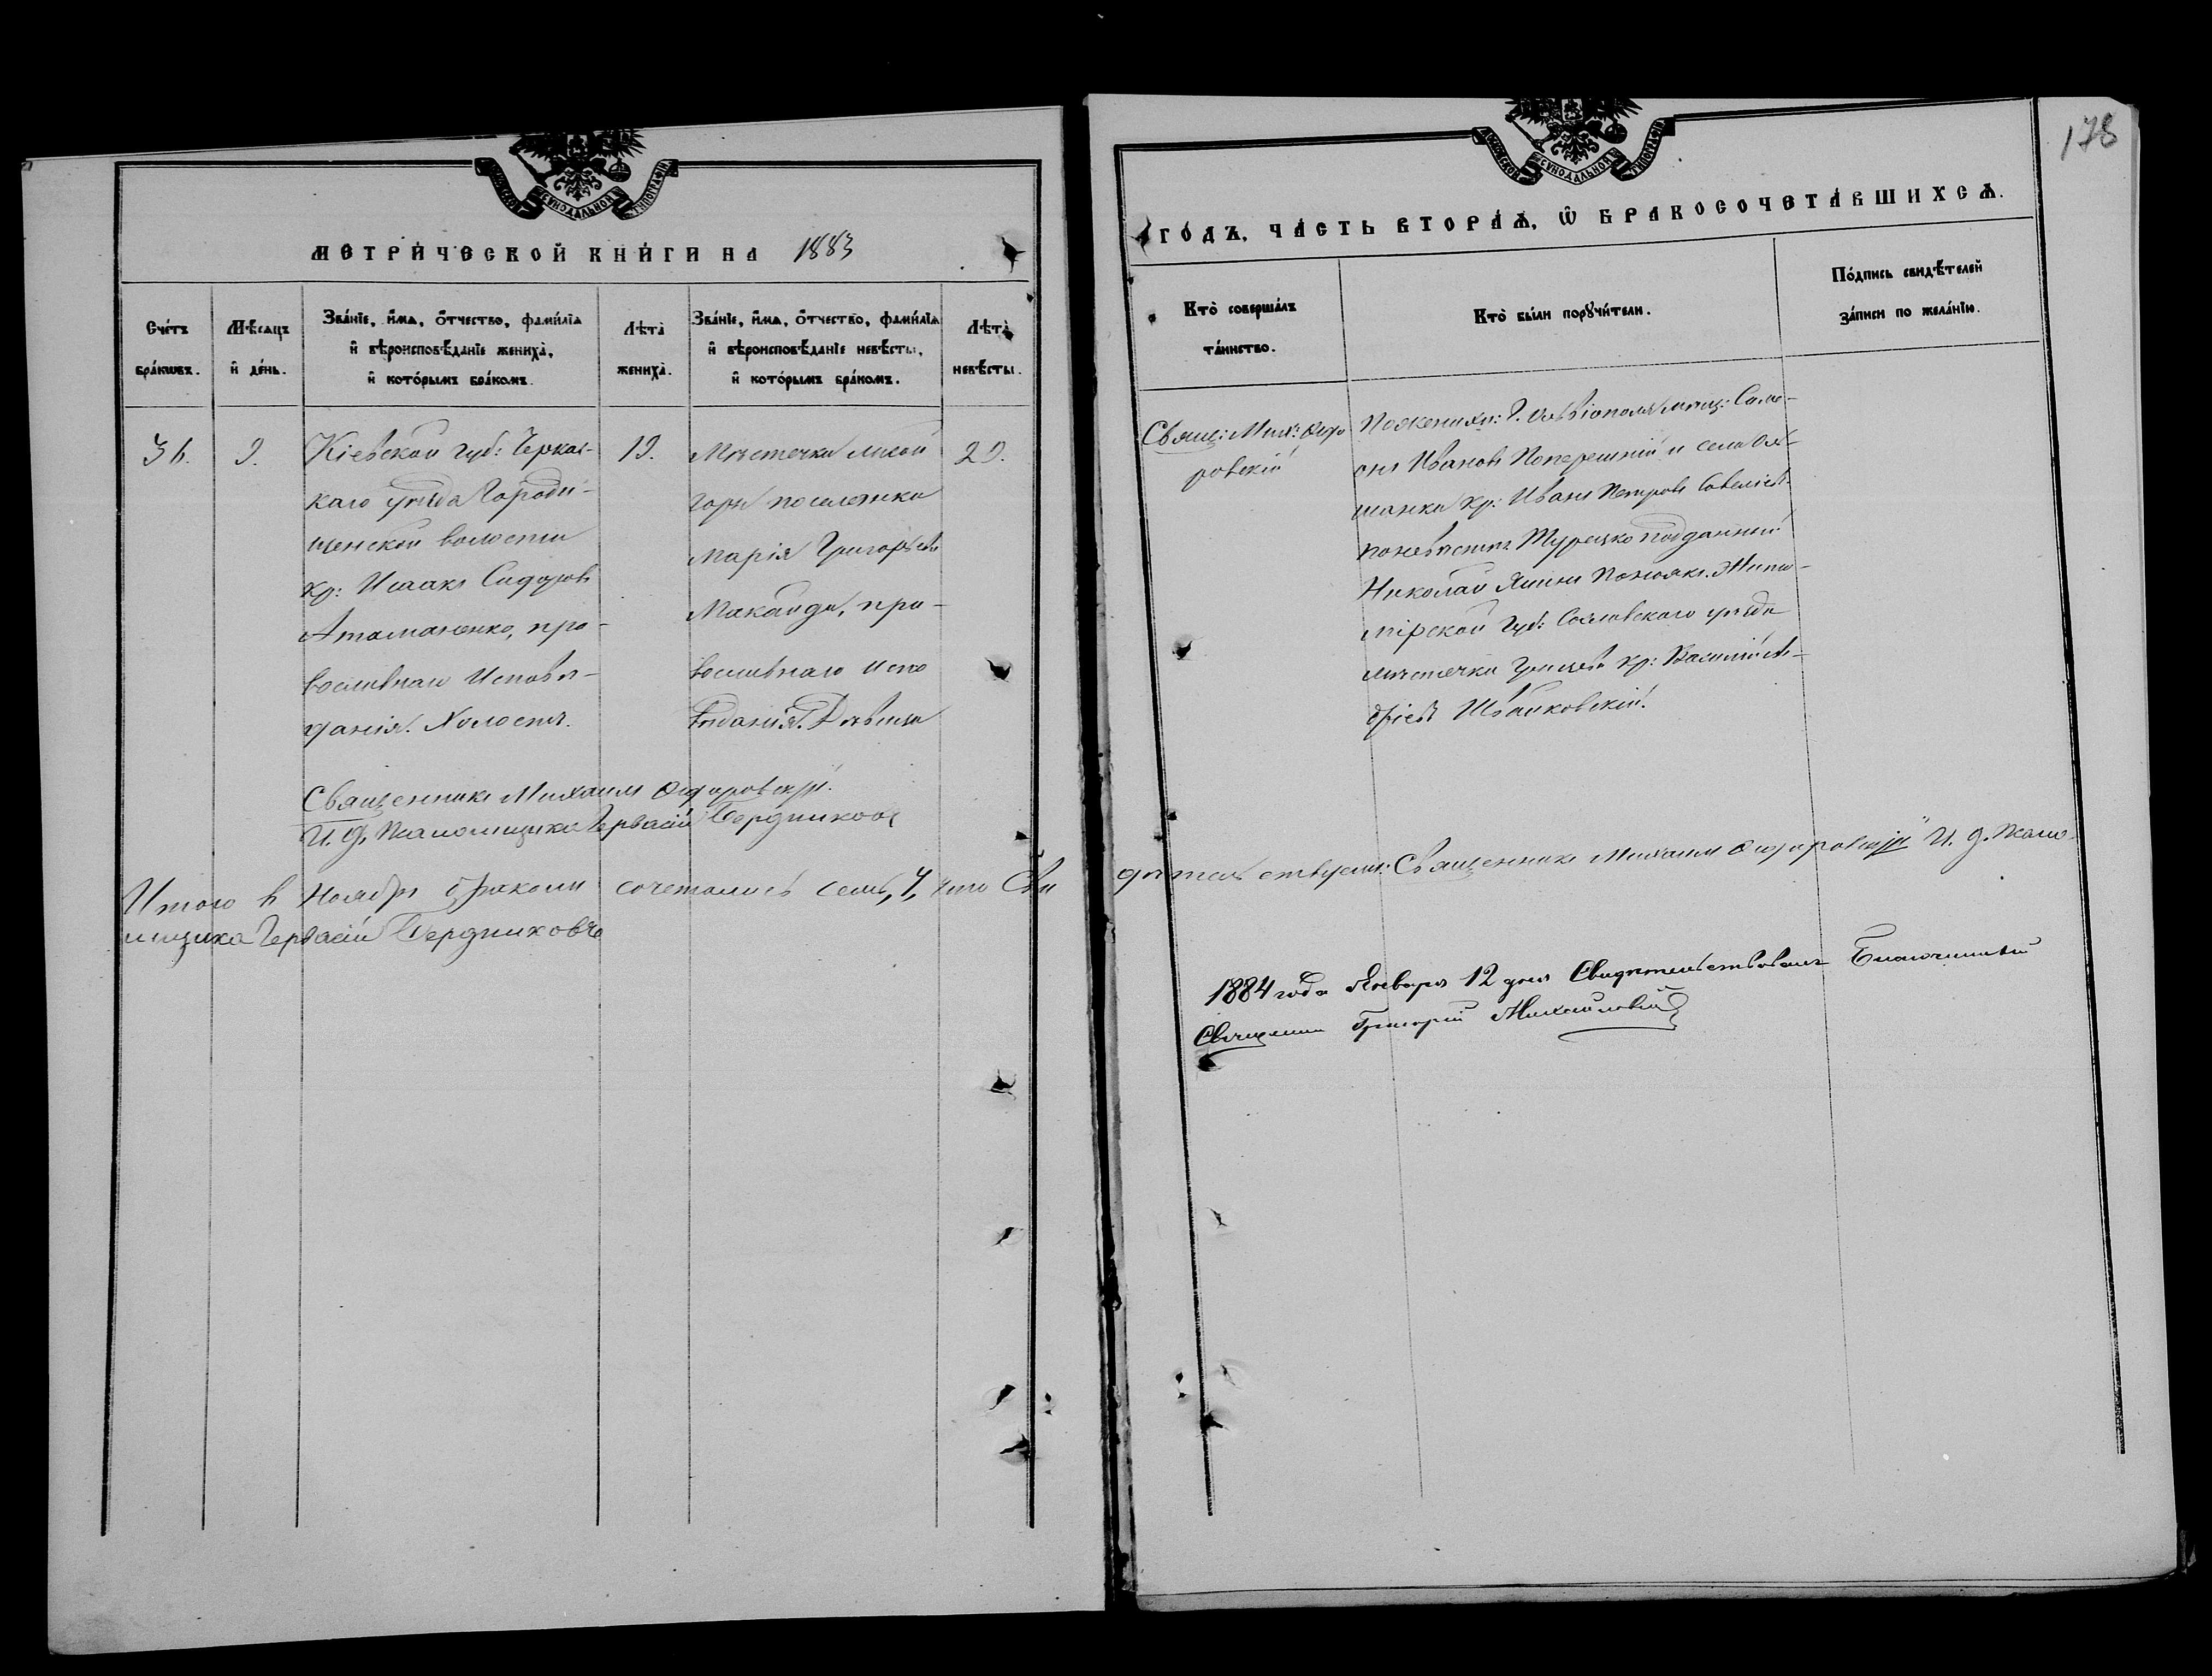 178
МЕТРИ́ЧЕСКОЙ КНИ́ГИ НА 1883
ГО́ДЪ, ЧА́СТЬ ВТОРА́Ѧ, Ѿ БРАКОСОЧЕТА́ВШИХСѦ.
Сче́тъ бра́кѡвъ.
Мѣ́сѧцъ и҆ де́нь.
Зва́нїе, и҆́мѧ, ѻ҆́тчество, фами́лїѧ
и҆ вѣроисповѣ́данїе жениха̀,
и҆ кото́рымъ бра́комъ.
Лѣта̀ жениха̀.
Зва́нїе, и҆́мѧ, ѻ҆́тчество, фами́лїѧ
и҆ вѣроисповѣ́данїе невѣ́сты,
и҆ кото́рымъ бра́комъ.
Лѣта̀ невѣ́сты.
Кто̀ соверша́лъ
та́инство.
Кто̀ бы́ли порꙋчи́тели.
По́дпись свидѣ́телей
за́писи по жела́нїю.
36.
9.
Кіевской губ: Черкас-
каго уѣзда Городи-
щенской волости
кр: Исаакъ Сидоровъ
Атаманенко, пра-
вославнаго Исповѣ-
данія. Холостъ.
19.
Мѣстечка Лысой
горы поселянка
Марія Григорьева
православнаго испо
вѣданія. Дѣвица
20.
Свящ: Мих: Ѳедо
ровскій
По женихѣ: Г. Ольвіополя мѣщ: Симе-
онъ Ивановъ и села
кр: Иванъ Петровъ Савельевъ.
по невѣстѣ Турецко подданный
Николай Жито-
мірской губ: уѣзда
мѣстечка кр: Василій
Швайковскій.
Священникъ Михаилъ Ѳедоровскій.
И. д. Псаломщика Гервасій Бердниковъ
Итого въ Ноябрѣ бракомъ сочетались семь, 7, что Сви
дѣтельствуемъ: Священникъ Михаилъ Ѳедоровскій И. д. Псало-
мщика Гервасій Бердниковъ
1884 года Января 12 дня Свидѣтельствовалъ Благочинный
Священникъ Григорій Михайловскій